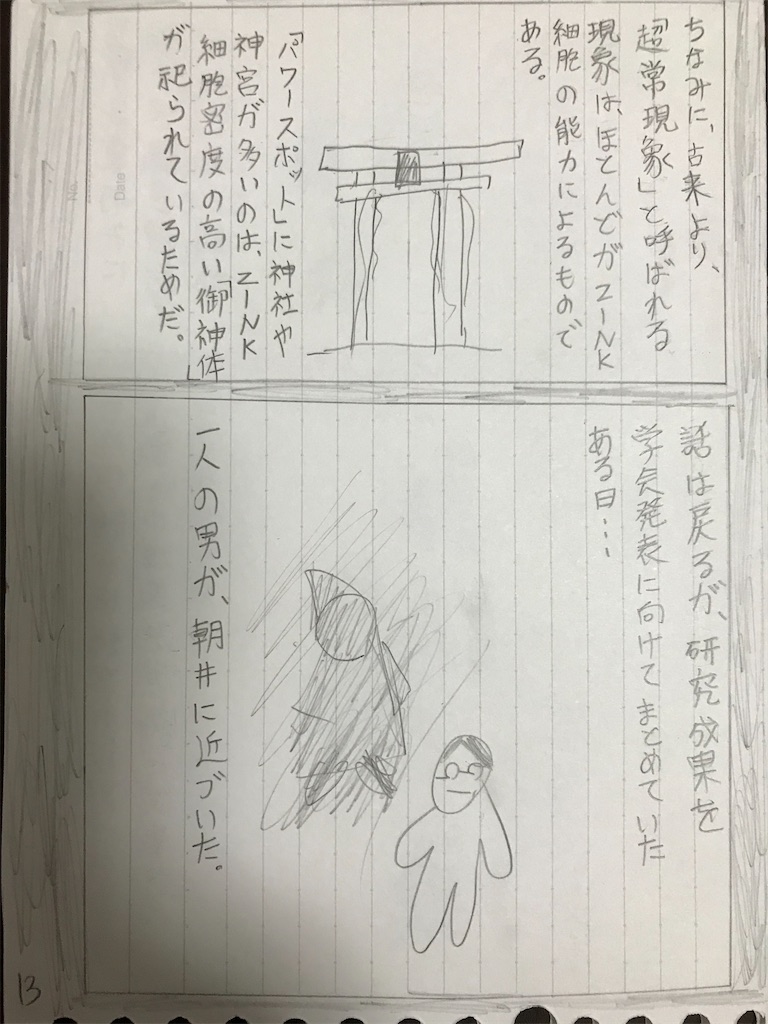 ちなみに、古来より、
「超常現象」と呼ばれる
現象は、ほとんどがZINK
細胞の能力によるもので
ある。
「パワースポット」に神社や
神宮が多いのは、ZINK
細胞密度の高い「御神体」
が祀られているためだ。
話は戻るが、研究成果を
学会発表に向けてまとめていた
ある日…
一人の男が、朝井に近づいた。
No.
Date
13